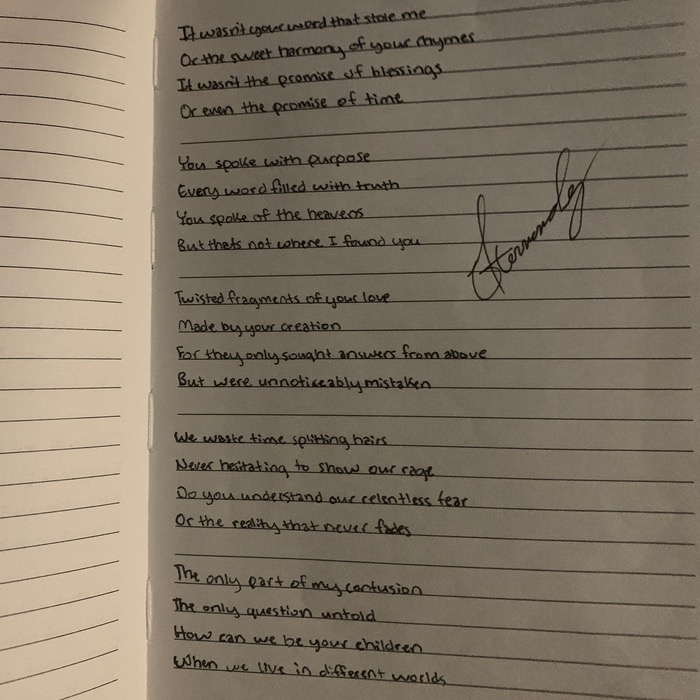 It wasn't your word that stole me
Or the sweet harmony of your rhymes
It wasn't the promise of blessings
Or even the promise of time
You spoke with purpose
Every word filled with truth
You spoke of the heavens
But thats not where I found you
Twisted fragments of your love
Made by your creation
For they only sought answers from above
But were unnoticeably mistaken
We waste time splitting hairs
Never hesitating to show our rage
Do you understand our relentless fear
Or the reality that never fades
The only part of my confusion
The only question untold
How can we be your children
When we live in different worlds